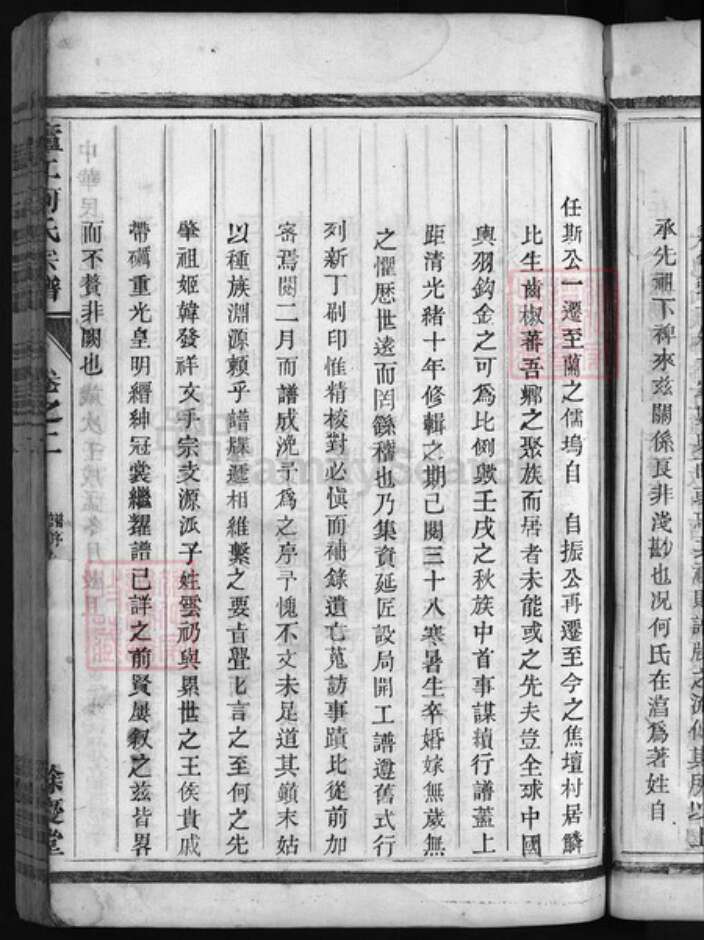 承先祖下裨來兹關係良非淺尠也况何氏在瀛爲著姓自
任斯公一遷至蘭之儒塢自 自振公再遷至今之焦壇村居鱗
比生齒椒蕃吾鄉之聚族而居者未能或之先夫豈全球中國
輿羽鈎金之可爲比例歟壬戌之秋族中首事謀續行譜蓋上
距清光緒十年修輯之期已閱三十八寒暑生卒婚嫁無歲無
之懼歷世遠而罔繇稽也乃集資延匠設局開工譜遵舊式行
列新丁剮印惟精校對必慎而補錄遺亡蒐訪事蹟比從前加
密焉閱二月而譜成浼予爲之序予愧不文未足道其顚末姑
以種族淵源賴乎譜牒遞相維繫之要旨舉比言之至何之先
肇祖姬韓發祥文手宗支源派子姓雲礽與累世之王侯貴戚
帶礪重光皇明縉紳冠裳繼耀譜已詳之前賢屢叙之茲皆畧
而不贅非闕也
中華民
歲次壬戌孟冬月
廬江何氏宗譜
卷之二
餘慶堂
FamilySearch